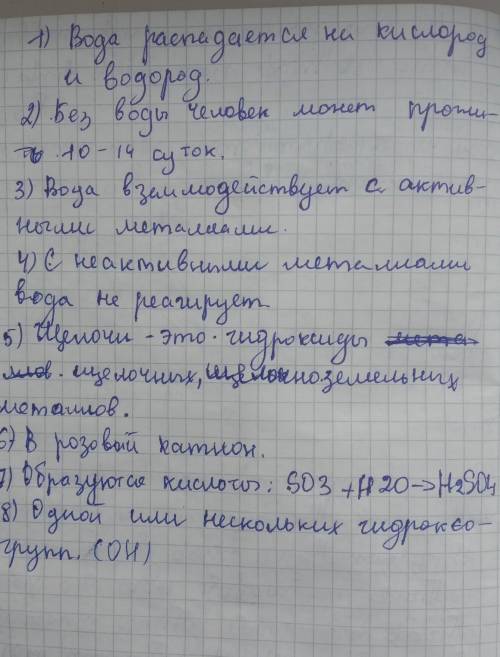 1) Вода распадается на кислород
и водород.
2) Без воды человек может прожи-
ть 10-14 суток.
3) Вода взаимодействует с актив-
ными металлами.
4) С неактивными металлами
вода не реагирует
5) Щелочи - это гидроксиды мета-
лов. щелочных, щелочноземельных
металлов.
6) В розовый катион.
7) Образуются кислоты: SO3 + H2O → H2SO4
8) Одной или нескольких гидроксо-
групп. (OH)